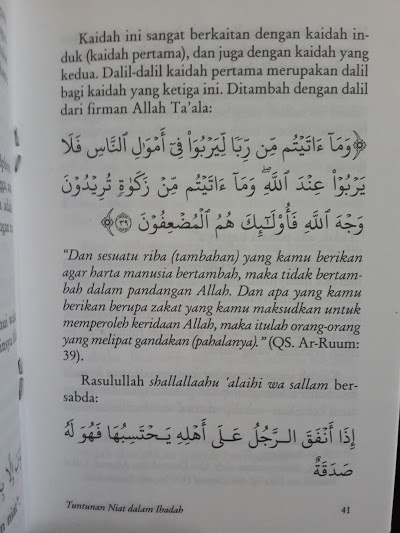 Kaidah ini sangat berkaitan dengan kaidah in-
duk (kaidah pertama), dan juga dengan kaidah yang
kedua. Dalil-dalil kaidah pertama merupakan dalil
bagi kaidah yang ketiga ini. Ditambah dengan dalil
dari firman Allah Ta'ala:
﴿وَمَآ ءَاتَيْتُم مِّن رِّبًا لِّيَرْبُوَا۟ فِىٓ أَمْوَٰلِ ٱلنَّاسِ فَلَا
يَرْبُوا۟ عِندَ ٱللَّهِ ۖ وَمَآ ءَاتَيْتُم مِّن زَكَوٰةٍ تُرِيدُونَ
وَجْهَ ٱللَّهِ فَأُو۟لَٰٓئِكَ هُمُ ٱلْمُضْعِفُونَ ٣٩﴾
"Dan sesuatu riba (tambahan) yang kamu berikan
agar harta manusia bertambah, maka tidak bertam-
bah dalam pandangan Allah. Dan apa yang kamu
berikan berupa zakat yang kamu maksudkan untuk
memperoleh keridaan Allah, maka itulah orang-orang
yang melipat gandakan (pahalanya)." (QS. Ar-Ruum:
39).
Rasulullah shallallaahu 'alaihi wa sallam ber-
sabda:
إِذَا أَنْفَقَ الرَّجُلُ عَلَى أَهْلِهِ يَحْتَسِبُهَا فَهُوَ لَهُ
صَدَقَةٌ
Tuntunan Niat dalam Ibadah 41